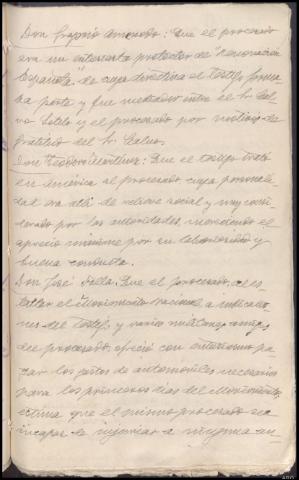 Don Gregorio Amorado: Que el procesado
era un entusiasta protector de "Renovación
Española" de cuya directiva el testigo forma-
ba parte y fue mediador entre el Sr. Cal-
vo Sotelo y el procesado por motivos de
gratitud del Sr. Calvo.
Don Teodoro Martinez: Que el testigo trató
en América al procesado cuya personali-
dad era allí de relieve social y muy consi-
derado por las autoridades, mereciendo el
aprecio unánime por su laboriosidad y
buena conducta.
Don José Salla. Que el procesado, al es-
tallar el Movimiento Nacional a indicacio-
nes del testigo y varios militares amigos
del procesado, ofreció con entusiasmo pa-
gar los gastos de automóviles necesarios
para los primeros días del Movimiento
estima que el mismo procesado es
incapaz de injuriar a ninguna au-